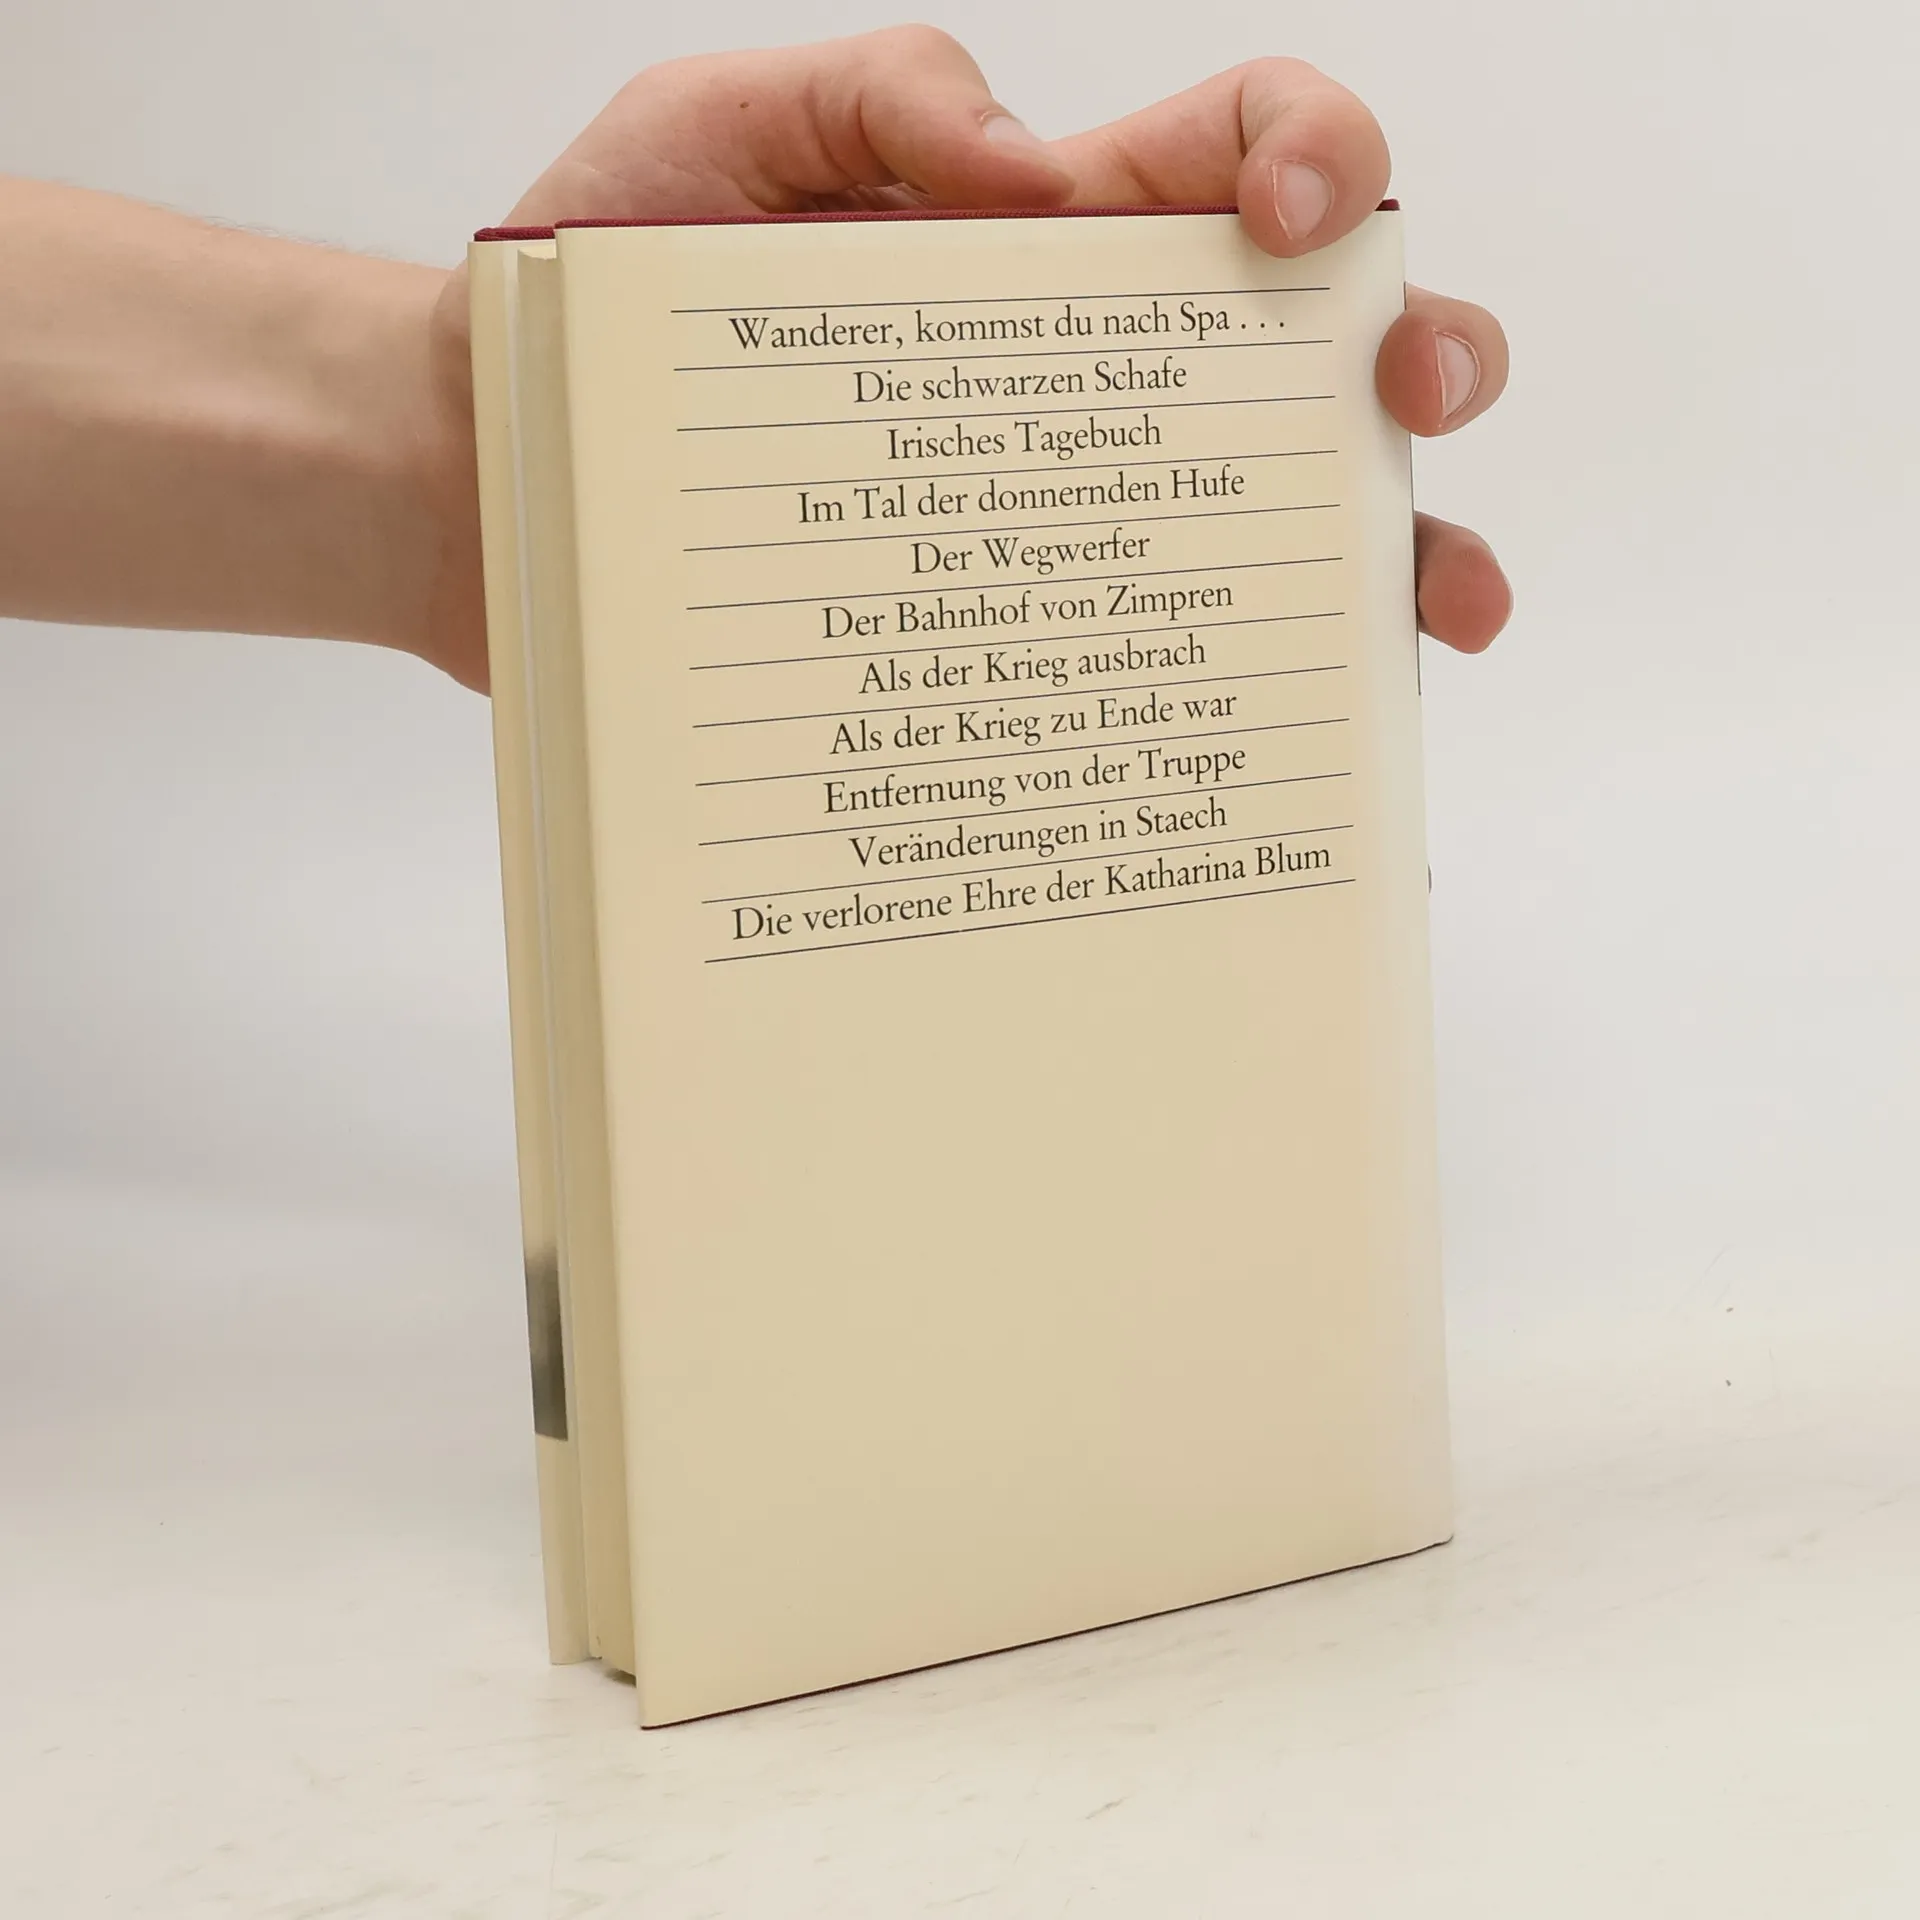 Wanderer, kommst du nach Spa . . .
Die schwarzen Schafe
Irisches Tagebuch
Im Tal der donnernden Hufe
Der Wegwerfer
Der Bahnhof von Zimpren
Als der Krieg ausbrach
Als der Krieg zu Ende war
Entfernung von der Truppe
Veränderungen in Staech
Die verlorene Ehre der Katharina Blum